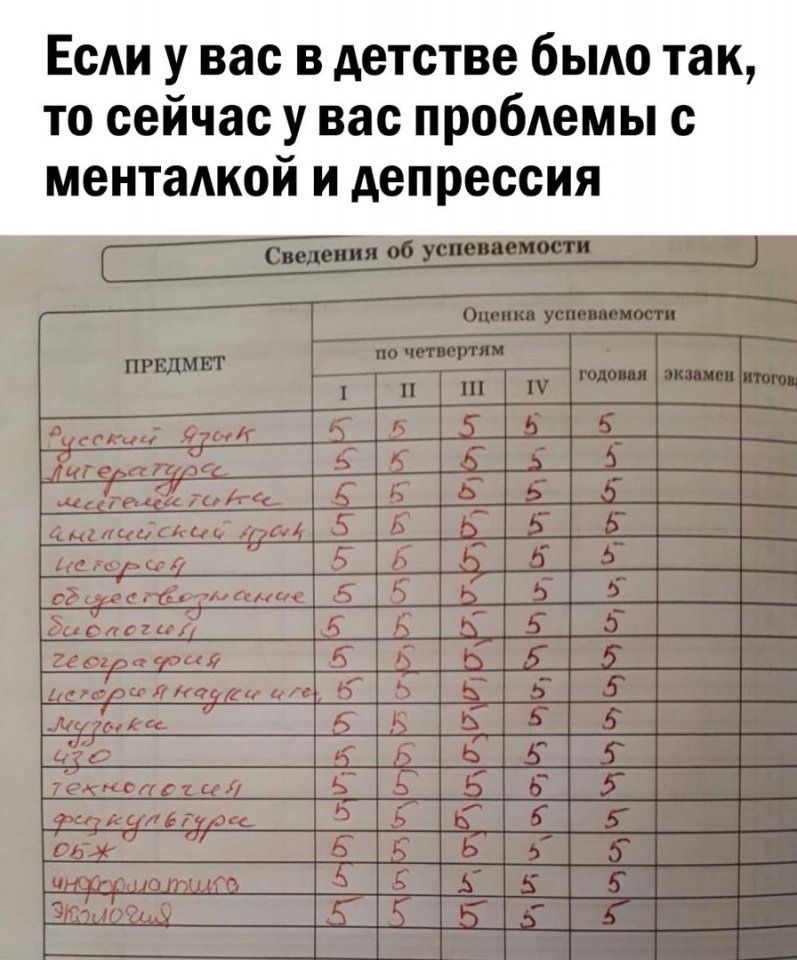 Если у вас в детстве было так,
то сейчас у вас проблемы с
менталкой и депрессия
Сведения об успеваемости
ПРЕДМЕТ
Оценка успеваемости
по четвертям
годовая экзамен
I II III IV
Русский язык 5 5 5 5 5
Литература 5 5 5 5 5
математика 5 5 5 5 5
английский язык 5 5 5 5 5
история 5 5 5 5 5
обществознание 5 5 5 5 5
биология 5 5 5 5 5
география 5 5 5 5 5
история науки и 5 5 5 5 5
Музыка 5 5 5 5 5
ИЗО 5 5 5 5 5
технология 5 5 5 5 5
физкультура 5 5 5 5 5
ОБЖ 5 5 5 5 5
информатика 5 5 5 5 5
Экология 5 5 5 5 5